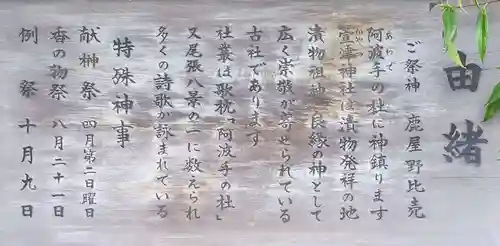 由緒
ご祭神 鹿屋野比売
阿波手の杜に神鎮ります
萱津神社は漬物発祥の地
漬物祖神 良縁の神として
広く崇敬が寄せられている
古社であります
社叢は歌枕「阿波手の杜」
又尾張八景の一に数えられ
多くの詩歌が詠まれている
特殊神事
献榊祭 四月第二日曜日
香の物祭 八月二十一日
例祭 十月九日